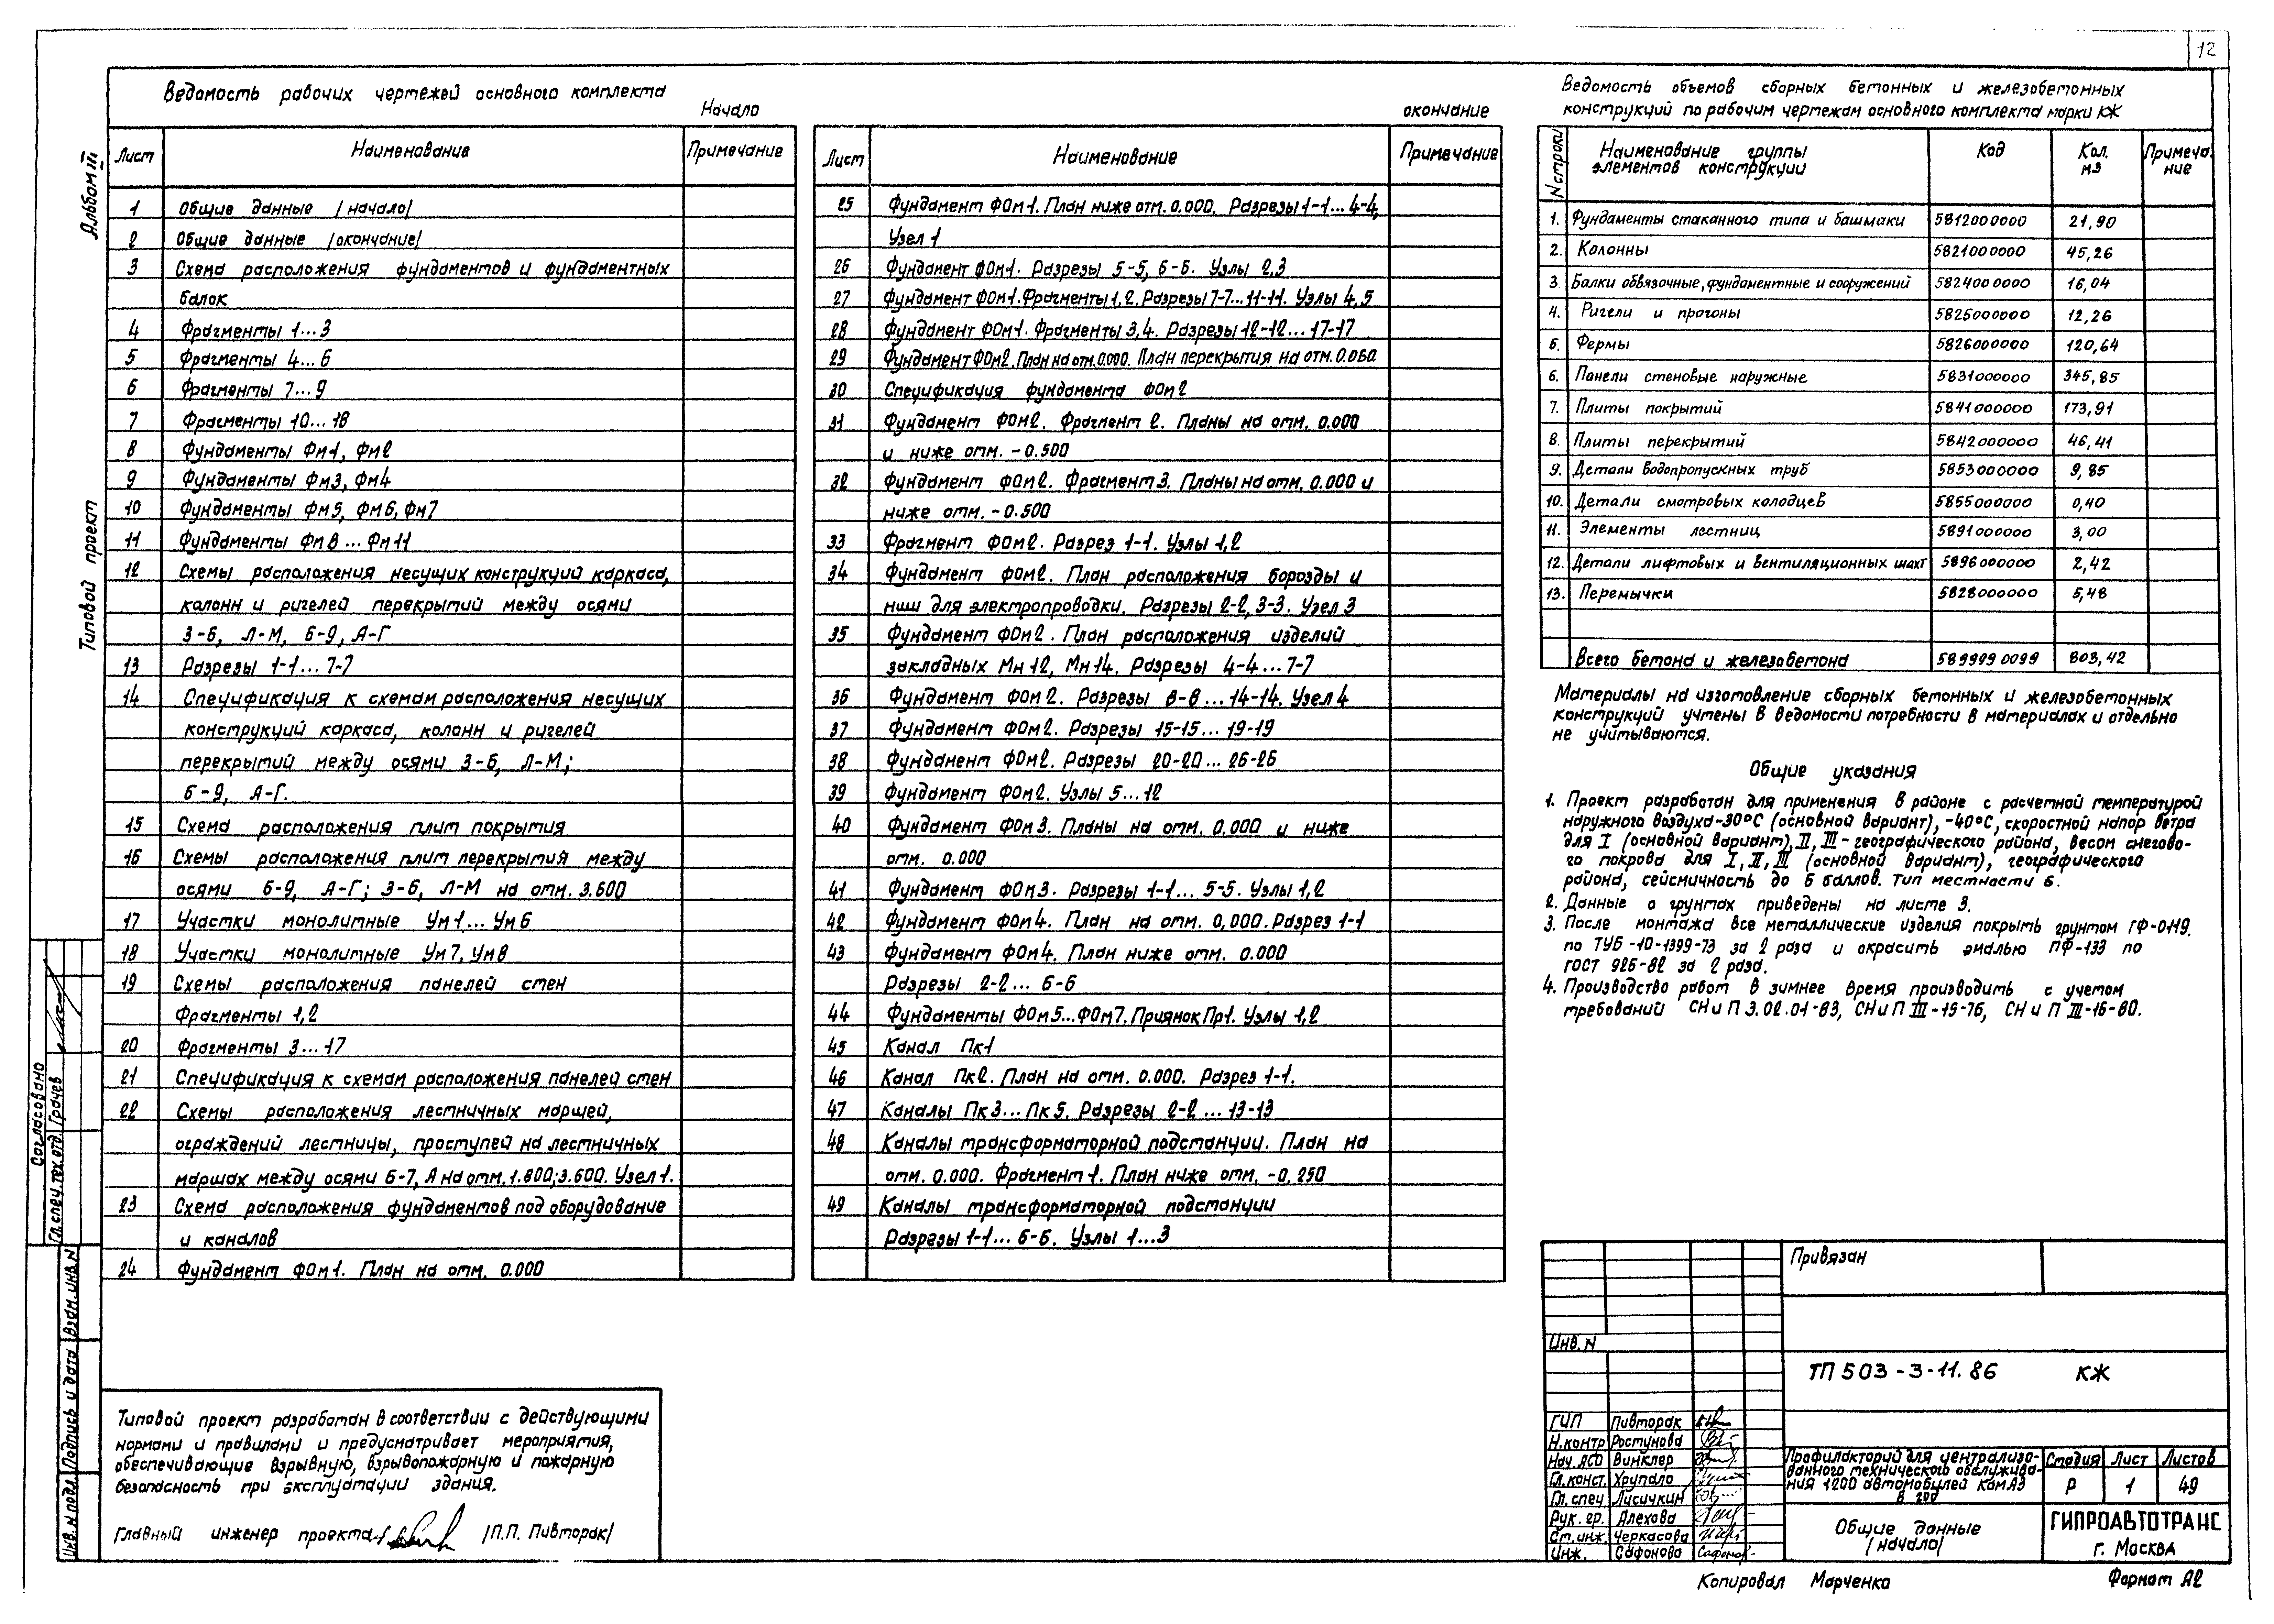 12
Альбом III
Типовой проект
Ведомость рабочих чертежей основного комплекта
Начало
Лист Наименование Примечание
1 Общие данные /начало/
2 Общие данные /окончание/
3 Схема расположения фундаментов и фундаментных
балок
4 Фрагменты 1...3
5 Фрагменты 4...6
6 Фрагменты 7...9
7 Фрагменты 10...18
8 Фундаменты Фм1, Фм2
9 Фундаменты Фм3, Фм4
10 Фундаменты Фм5, Фм6, Фм7
11 Фундаменты Фм8...Фм11
12 Схемы расположения несущих конструкций каркаса,
колонн и ригелей перекрытий между осями
3-6, Л-М, 6-9, А-Г
13 Разрезы 1-1...7-7
14 Спецификация к схемам расположения несущих
конструкций каркаса, колонн и ригелей
перекрытий между осями 3-6, Л-М;
6-9, А-Г.
15 Схема расположения плит покрытия
16 Схемы расположения плит перекрытия между
осями 6-9, А-Г; 3-6, Л-М на отм. 3.600
17 Участки монолитные Ум1...Ум6
18 Участки монолитные Ум7, Ум8
19 Схемы расположения панелей стен
Фрагменты 1,2
20 Фрагменты 3...17
21 Спецификация к схемам расположения панелей стен
22 Схемы расположения лестничных маршей,
ограждений лестницы, проступей на лестничных
маршах между осями 6-7, А на отм. 1.800; 3.600. Узел 1.
23 Схема расположения фундаментов под оборудование
и каналов
24 Фундамент ФОм1. План на отм. 0.000
окончание
Лист Наименование Примечание
25 Фундамент ФОм1. План ниже отм. 0.000. Разрезы 1-1...4-4,
Узел 1
26 Фундамент ФОм1. Разрезы 5-5, 6-6. Узлы 2,3
27 Фундамент ФОм1. Фрагменты 1,2. Разрезы 7-7...11-11. Узлы 4,5
28 Фундамент ФОм1. Фрагменты 3,4. Разрезы 12-12...17-17
29 Фундамент ФОм2. План на отм. 0.000. План перекрытия на отм. 0.060
30 Спецификация фундамента ФОм2
31 Фундамент ФОм2. Фрагмент 2. Планы на отм. 0.000
и ниже отм. -0.500
32 Фундамент ФОм2. Фрагмент 3. Планы на отм. 0.000 и
ниже отм. -0.500
33 Фрагмент ФОм2. Разрез 1-1. Узлы 1,2
34 Фундамент ФОм2. План расположения борозды и
ниш для электропроводки. Разрезы 2-2, 3-3. Узел 3
35 Фундамент ФОм2. План расположения изделий
закладных Мн12, Мн14. Разрезы 4-4...7-7
36 Фундамент ФОм2. Разрезы 8-8...14-14. Узел 4
37 Фундамент ФОм2. Разрезы 15-15...19-19
38 Фундамент ФОм2. Разрезы 20-20...26-26
39 Фундамент ФОм2. Узлы 5...12
40 Фундамент ФОм3. Планы на отм. 0.000 и ниже
отм. 0.000
41 Фундамент ФОм3. Разрезы 1-1...5-5. Узлы 1,2
42 Фундамент ФОм4. План на отм. 0,000. Разрез 1-1
43 Фундамент ФОм4. План ниже отм. 0.000
Разрезы 2-2...6-6
44 Фундаменты ФОм5...ФОм7. Приямок Пр1. Узлы 1,2
45 Канал Пк1
46 Канал Пк2. План на отм. 0.000. Разрез 1-1.
47 Каналы Пк3...Пк5. Разрезы 2-2...13-13
48 Каналы трансформаторной подстанции. План на
отм. 0.000. Фрагмент 1. План ниже отм. -0.250
49 Каналы трансформаторной подстанции
Разрезы 1-1...6-6. Узлы 1...3
Ведомость объемов сборных бетонных и железобетонных
конструкций по рабочим чертежам основного комплекта марки КЖ
N строки Наименование группы элементов конструкции Код Кол. м3 Примечание
1. Фундаменты стаканного типа и башмаки 5812000000 21,90
2. Колонны 5821000000 45,26
3. Балки обвязочные, фундаментные и сооружений 5824000000 16,04
4. Ригели и прогоны 5825000000 12,26
5. Фермы 5826000000 120,64
6. Панели стеновые наружные 5831000000 345,85
7. Плиты покрытий 5841000000 173,91
8. Плиты перекрытий 5842000000 46,41
9. Детали водопропускных труб 5853000000 9,85
10. Детали смотровых колодцев 5855000000 0,40
11. Элементы лестниц 5891000000 3,00
12. Детали лифтовых и вентиляционных шахт 5896000000 2,42
13. Перемычки 5828000000 5,48
Всего бетона и железобетона 5899990099 803,42
Материалы на изготовление сборных бетонных и железобетонных
конструкций учтены в ведомости потребности в материалах и отдельно
не учитываются.
Общие указания
1. Проект разработан для применения в районе с расчетной температурой
наружного воздуха -30°С (основной вариант), -40°С, скоростной напор ветра
для I (основной вариант), II, III - географического района, весом снегово-
го покрова для I, II, III (основной вариант), географического
района, сейсмичность до 6 баллов. Тип местности Б.
2. Данные о грунтах приведены на листе 3.
3. После монтажа все металлические изделия покрыть грунтом ГФ-0119.
по ТУ6-10-1399-73 за 2 раза и окрасить эмалью ПФ-133 по
ГОСТ 926-82 за 2 раза.
4. Производство работ в зимнее время производить с учетом
требований СНиП 3.02.01-83, СНиП III-15-76, СНиП III-16-80.
Согласовано
Гл. спец. тех. отд. Грачев
Взам. инв. N
Подпись и дата
Инв. N подл.
Типовой проект разработан в соответствии с действующими
нормами и правилами и предусматривает мероприятия,
обеспечивающие взрывную, взрывопожарную и пожарную
безопасность при эксплуатации здания.
Главный инженер проекта /П.П. Пивторак/
Привязан
Инв. N
ТП 503-3-11.86 КЖ
ГИП Пивторак
Н.контр Ростунова
Нач. АСО Винклер
Гл.конст. Хрупало
Гл. спец Лисичкин
Рук. гр. Алехова
Ст. инж. Черкасова
Инж. Сафонова
Профилакторий для централизо-
ванного технического обслужива-
ния 1200 автомобилей КамАЗ
в год
Стадия Лист Листов
Р 1 49
Общие данные
/начало/
ГИПРОАВТОТРАНС
г. Москва
Копировал Марченко
Формат А2